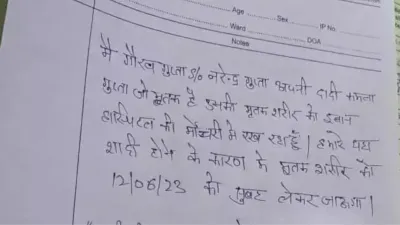 Age Sex IP No.
Ward DOA
Notes
मै गौरव गुप्ता S/o नरेन्द्र गुप्ता अपनी दादी कमला
गुप्ता जो मृतक है इनकी मृतक शरीर को
हास्पिटल की मोर्चरी मे रख रहा हूँ | हमारे यहा
शादी होने के कारण के मृतक शरीर को
12/06/23 को सुबह लेकर जाऊगा |